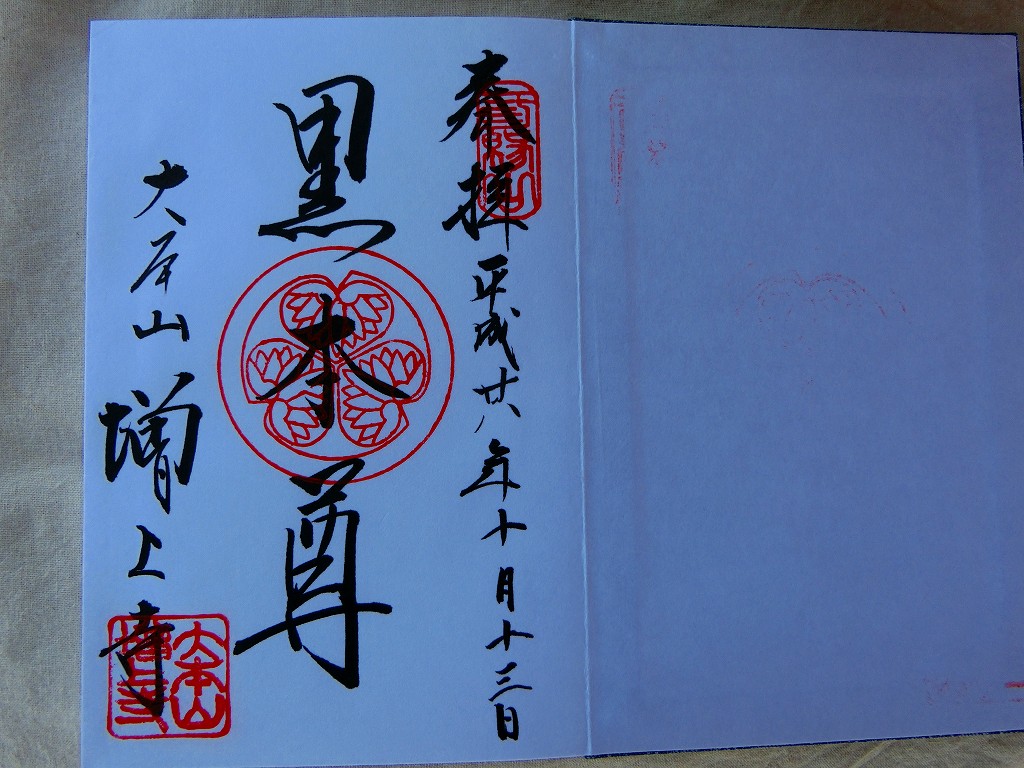 奉拝 平成廿六年十月十三日
黒本尊
大本山 増上寺
大本山
増上寺